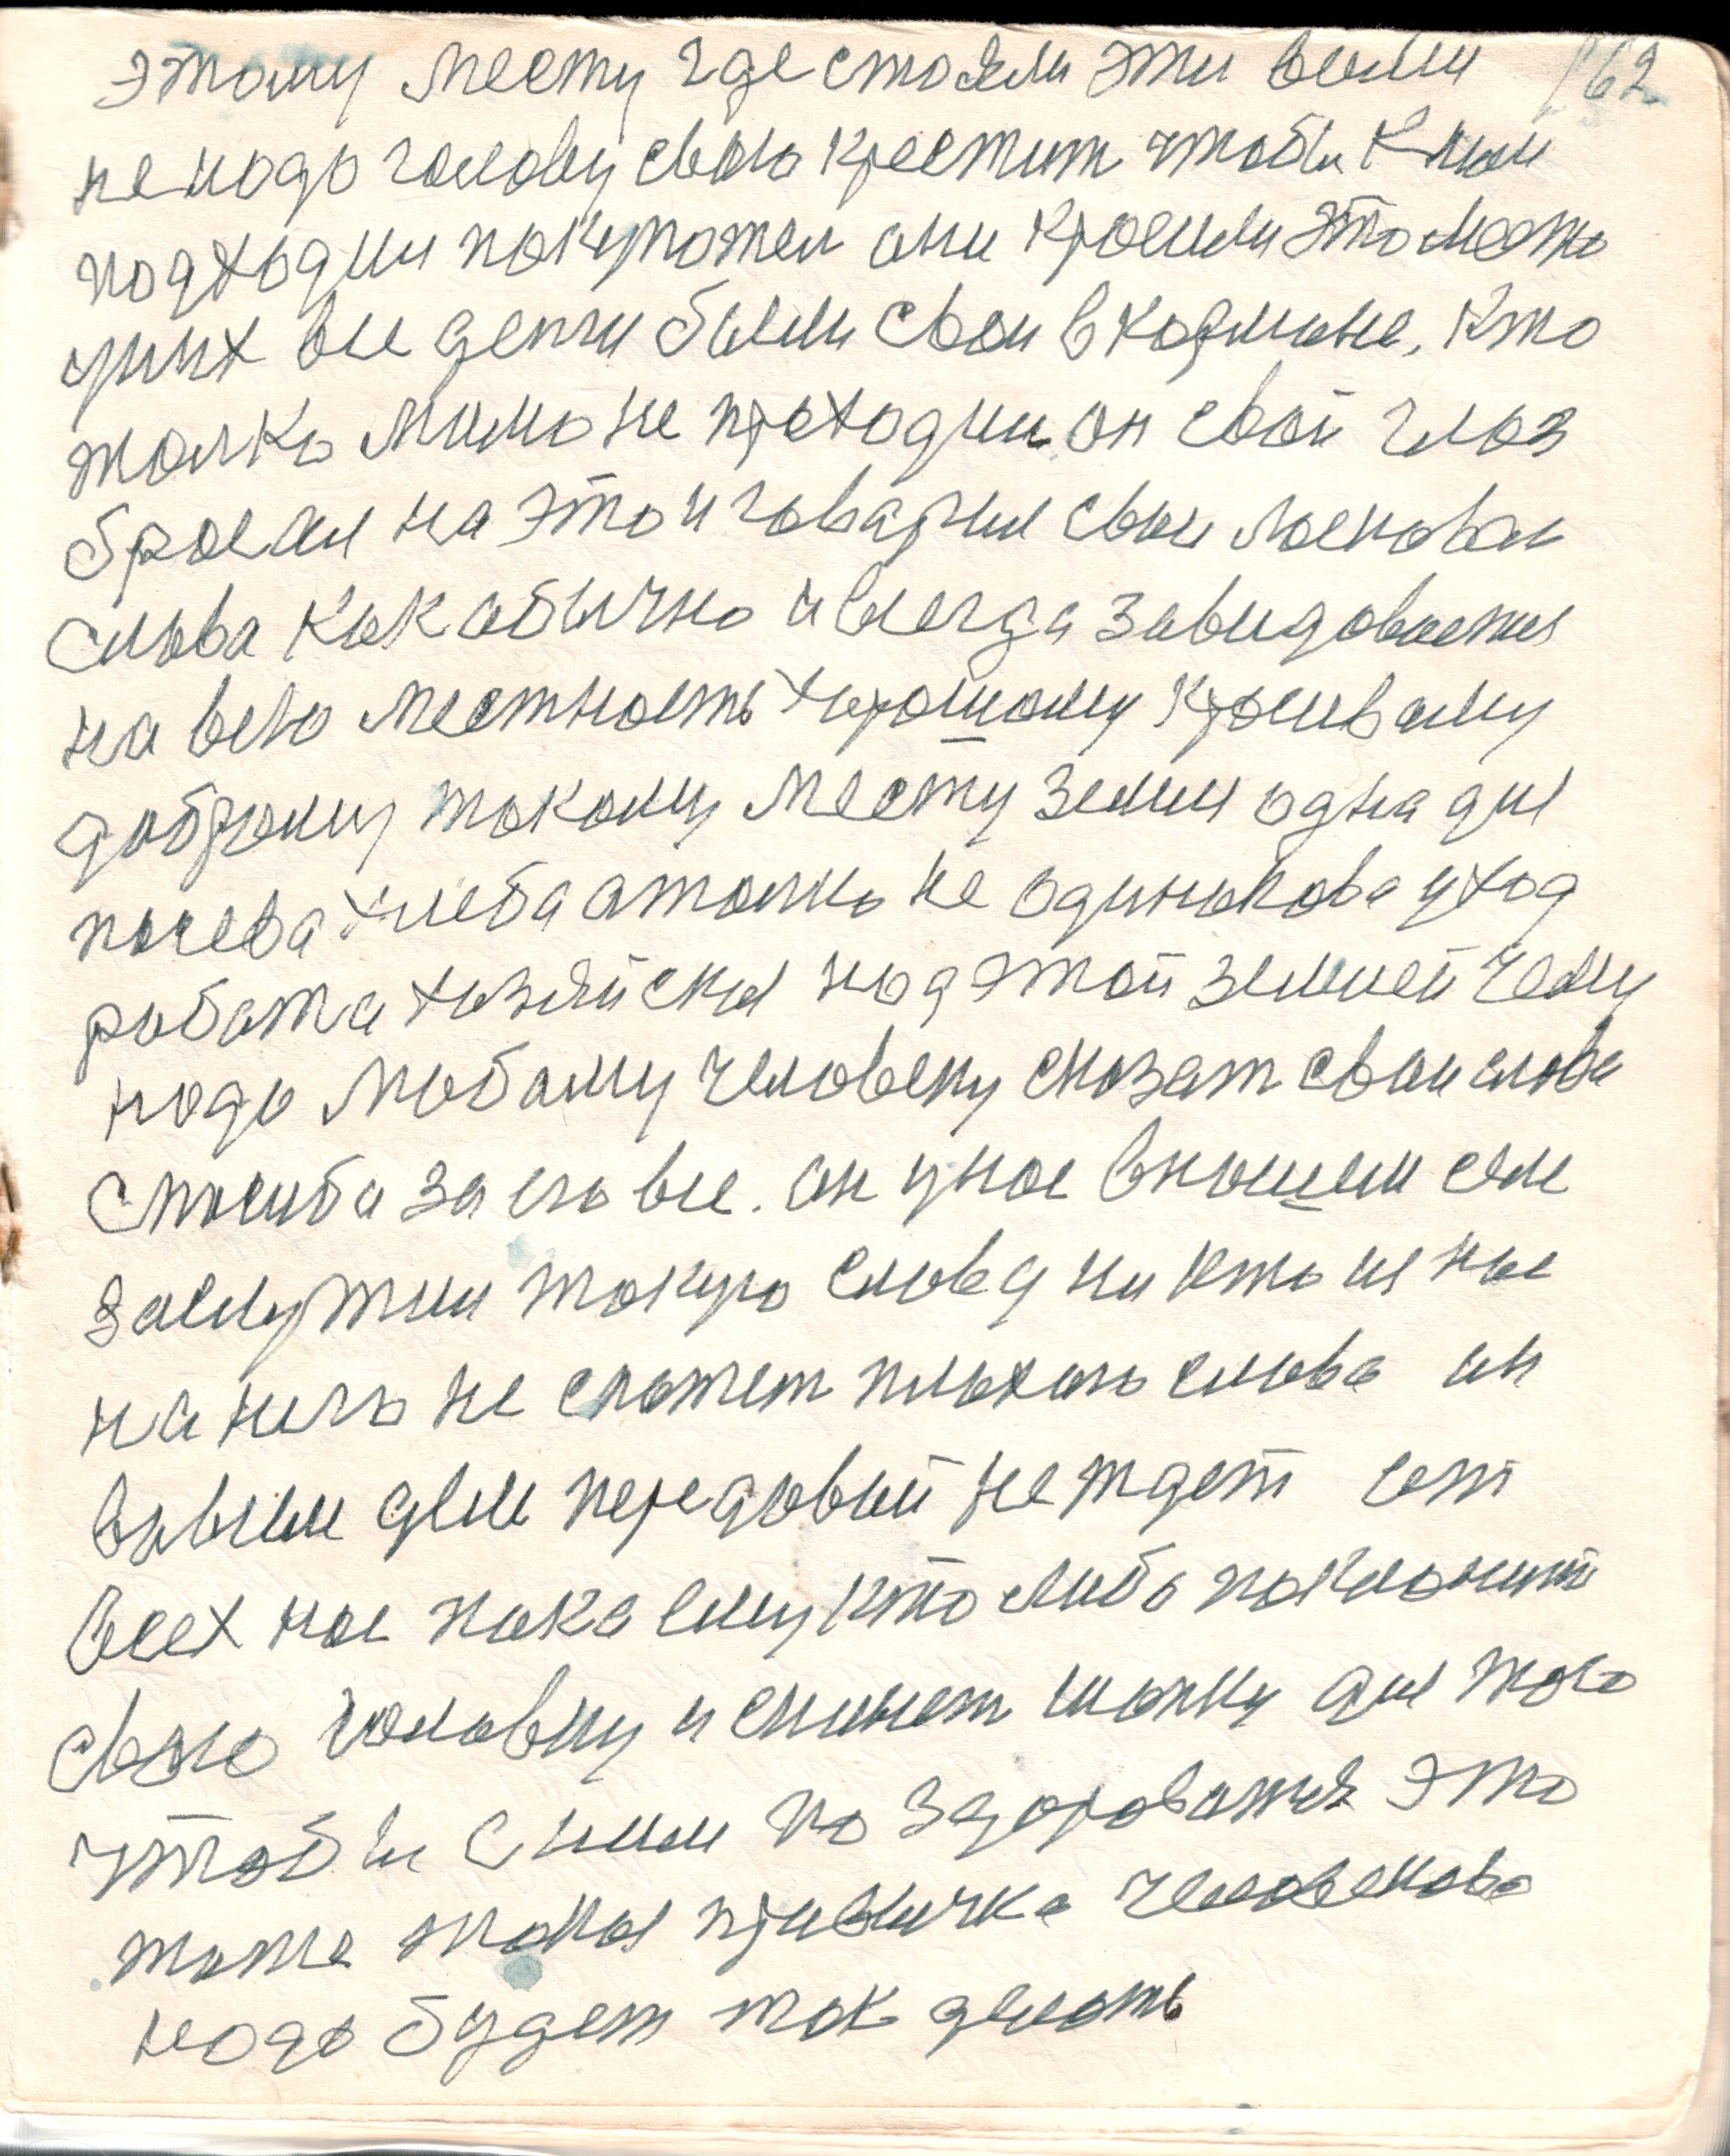 этому месту где стояли эти весили 162
не надо голову свою крестит чтобы к ним
подходил покупател они красили это место
у них все денги были свои в кармане, кто
толко мимо не проходил он свой глаз
бросил на это и говарил свои ласковаи
слова как обычно и всегда завидовается
на всю местность хорошому красиваму
доброму такому месту земля одна для
посева хлеба а толко не одинокова уход
работа хозяйская над этой землей чему
надо любому человеку сказат свои слова
спосиба за его все. он у нас в нашем селе
заслужил такую славу ни кто из нас
на него не скажет плохого слова он
в нашем деле передовый не ждет от
всех нас пока ему кто либо поклонит
свою головку и скинет шапку для того
чтобы с ним по здороватся это
тоже такая привычка человекова
надо будет так делать